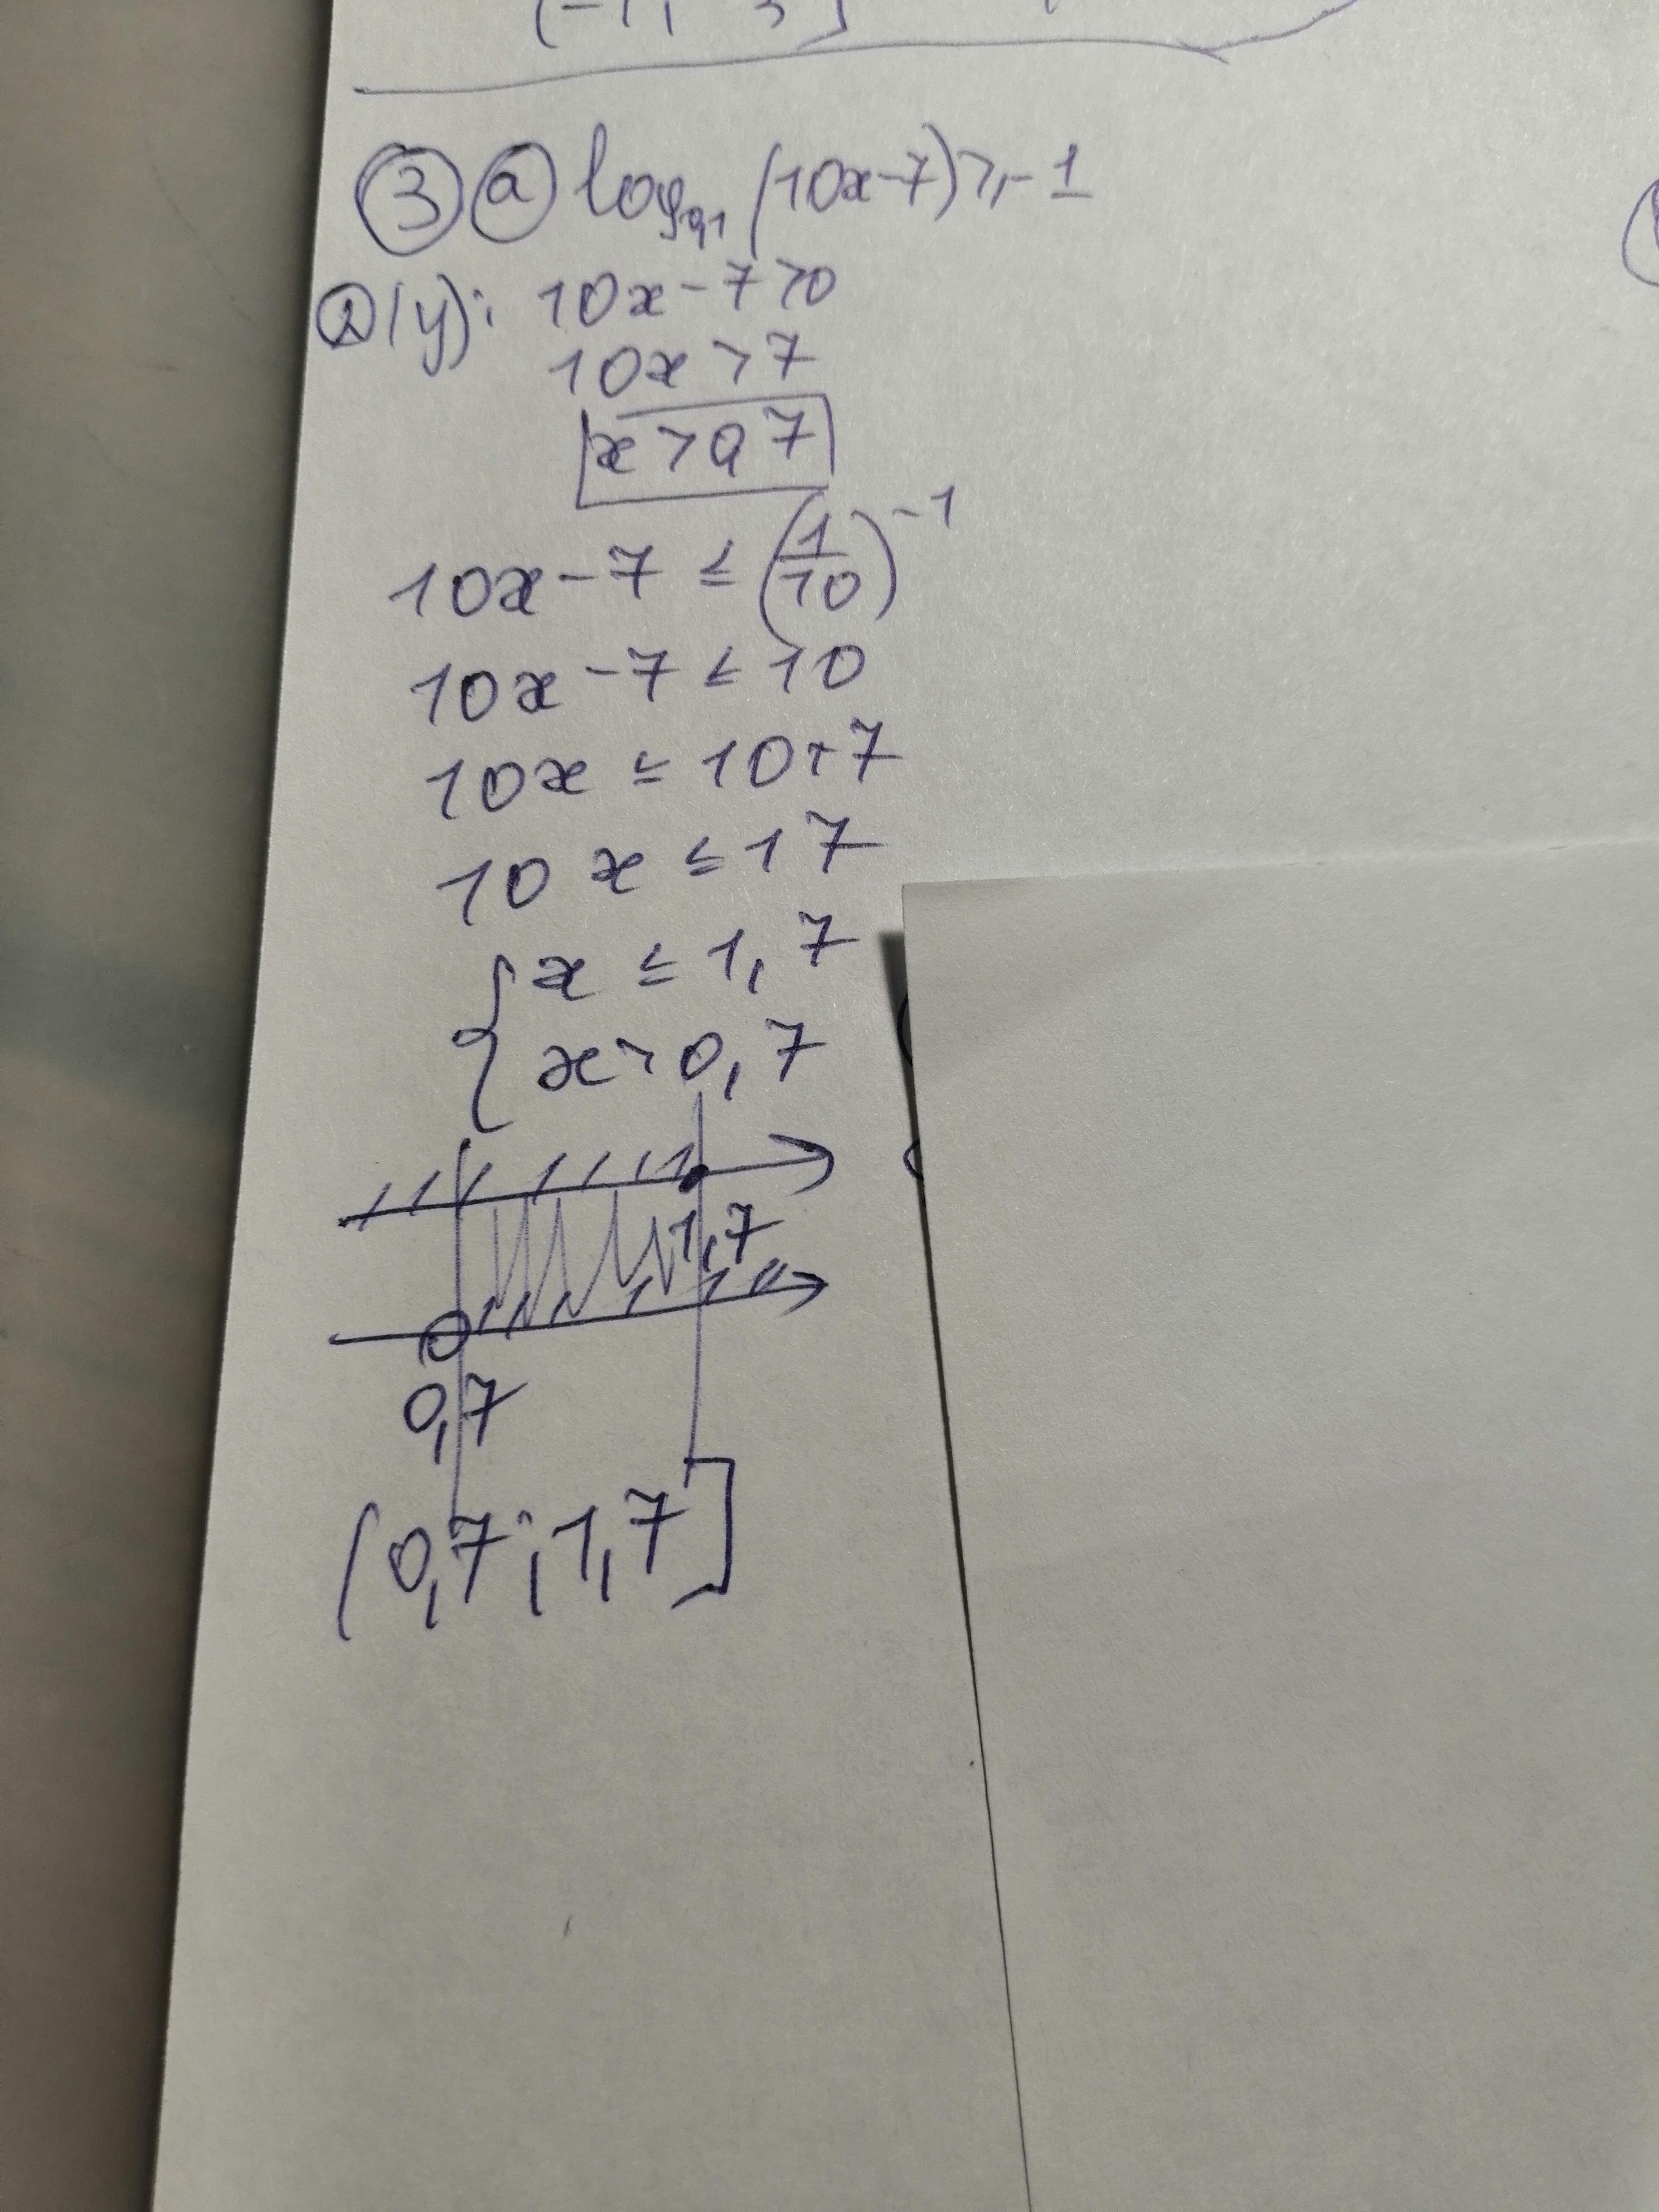 3 a log₀,₁ (10x-7) ≥ -1
D(y): 10x-7>0
10x>7
x>0,7
10x-7 ≤ (1/10)⁻¹
10x-7 ≤ 10
10x ≤ 10+7
10x ≤ 17
{ x ≤ 1,7
x>0,7
1,7
0,7
(0,7;1,7]